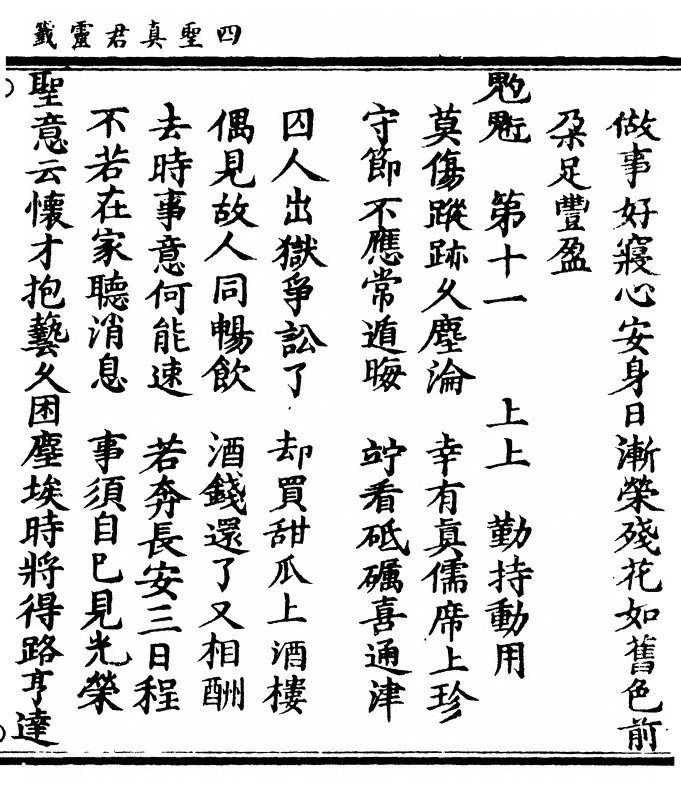 四聖真君靈籤
做事好寢心安身日漸榮殘花如舊色前
朶足豐盈
第十一 上上 勤持動用
莫傷蹤跡久塵淪 幸有眞儒席上珍
守節不應常遁晦 竚看砥礪喜通津
囚人出獄爭訟了 却買甜瓜上酒樓
偶見故人同暢飲 酒錢還了又相酬
去時事意何能速 若奔長安三日程
不若在家聽消息 事須自己見光榮
聖意云懷才抱藝久困塵埃時將得路亨達